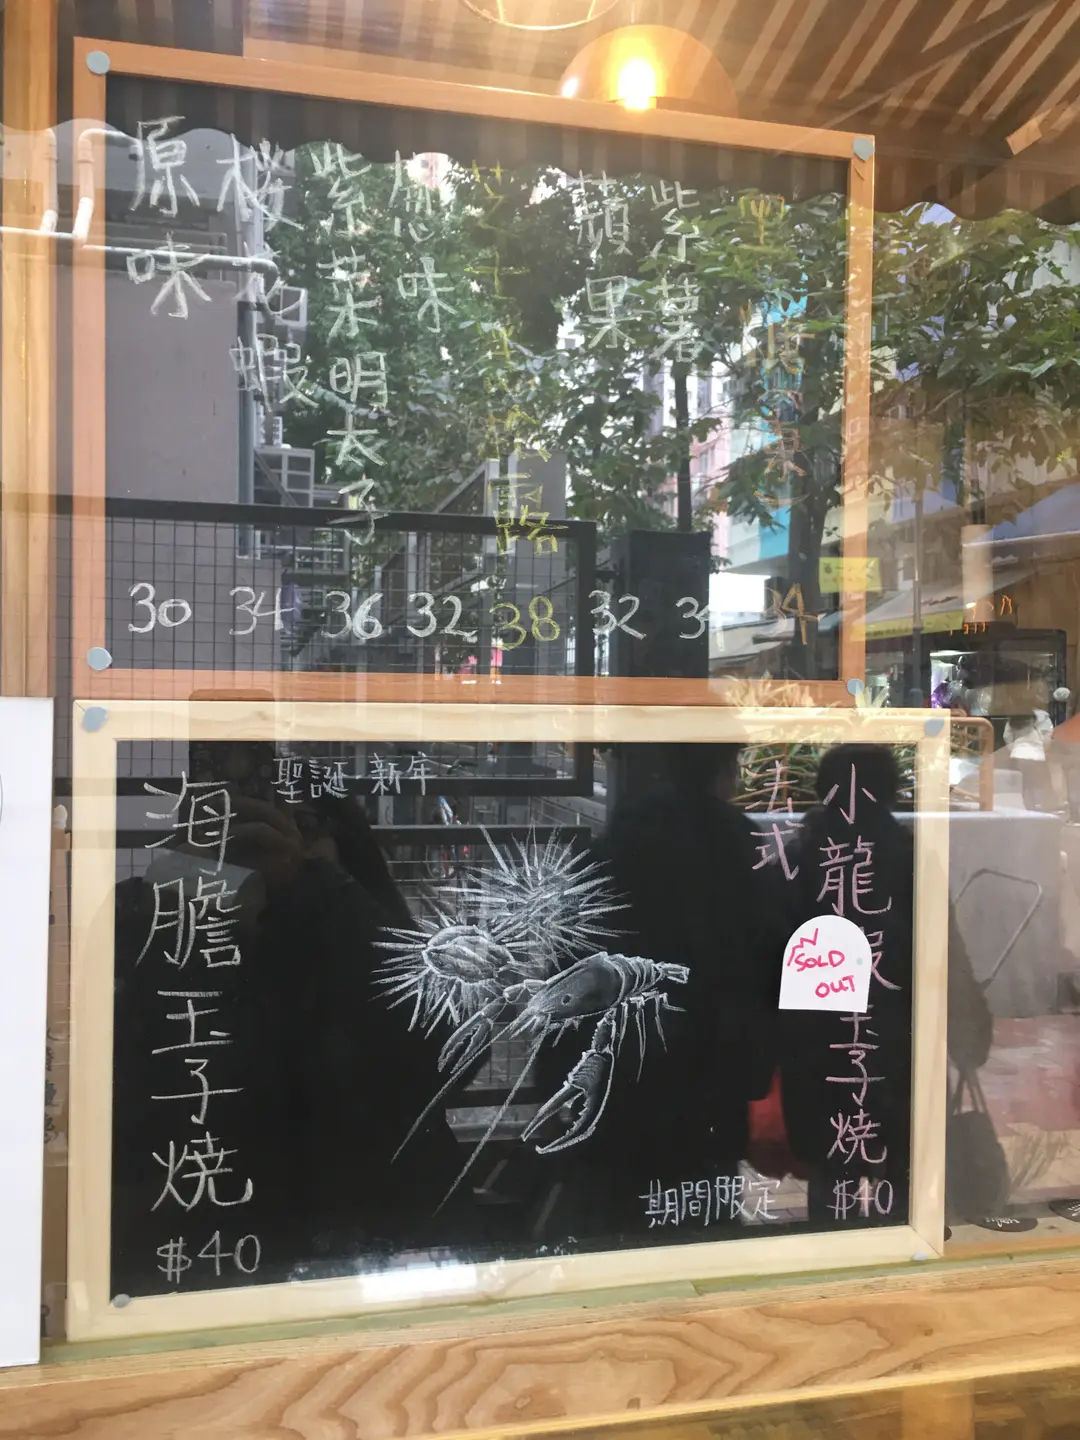 原味
30
桜花蝦
34
紫菜明太子
36
葱味
32
芝士 露
38
蘋果
32
紫薯
34
聖誕 新年
海膽玉子燒
$40
法式
小龍 玉子燒
$40
SOLD
OUT
期間限定